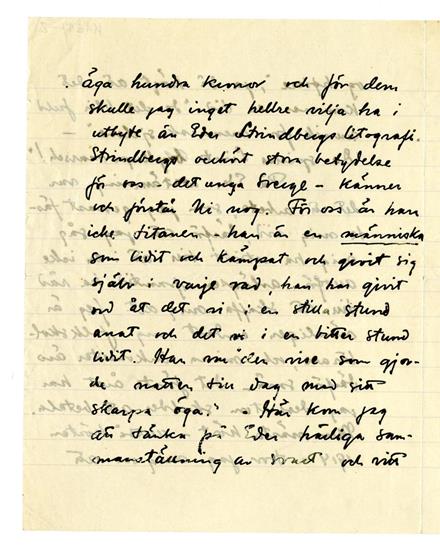 äga hundra kronor och för dem
skulle jag inget hellre vilja ha i
utbyte än Eder Strindbergs litografi.
Strindbergs oerhört stora betydelse
för oss - det unga Sverge - känner
och förstår Ni nog. För oss är han
icke titanen - han är en människa
som lidit och kämpat och givit sig
själv i varje rad, han har givit
ord åt det vi i en stilla stund
anat och det vi i en bitter stund
lidit. Han var den vise som gjor-
de natten till dag med sitt
skarpa öga." - Här kom jag
att tänka på Eder härliga sam-
manställning av svart och vitt